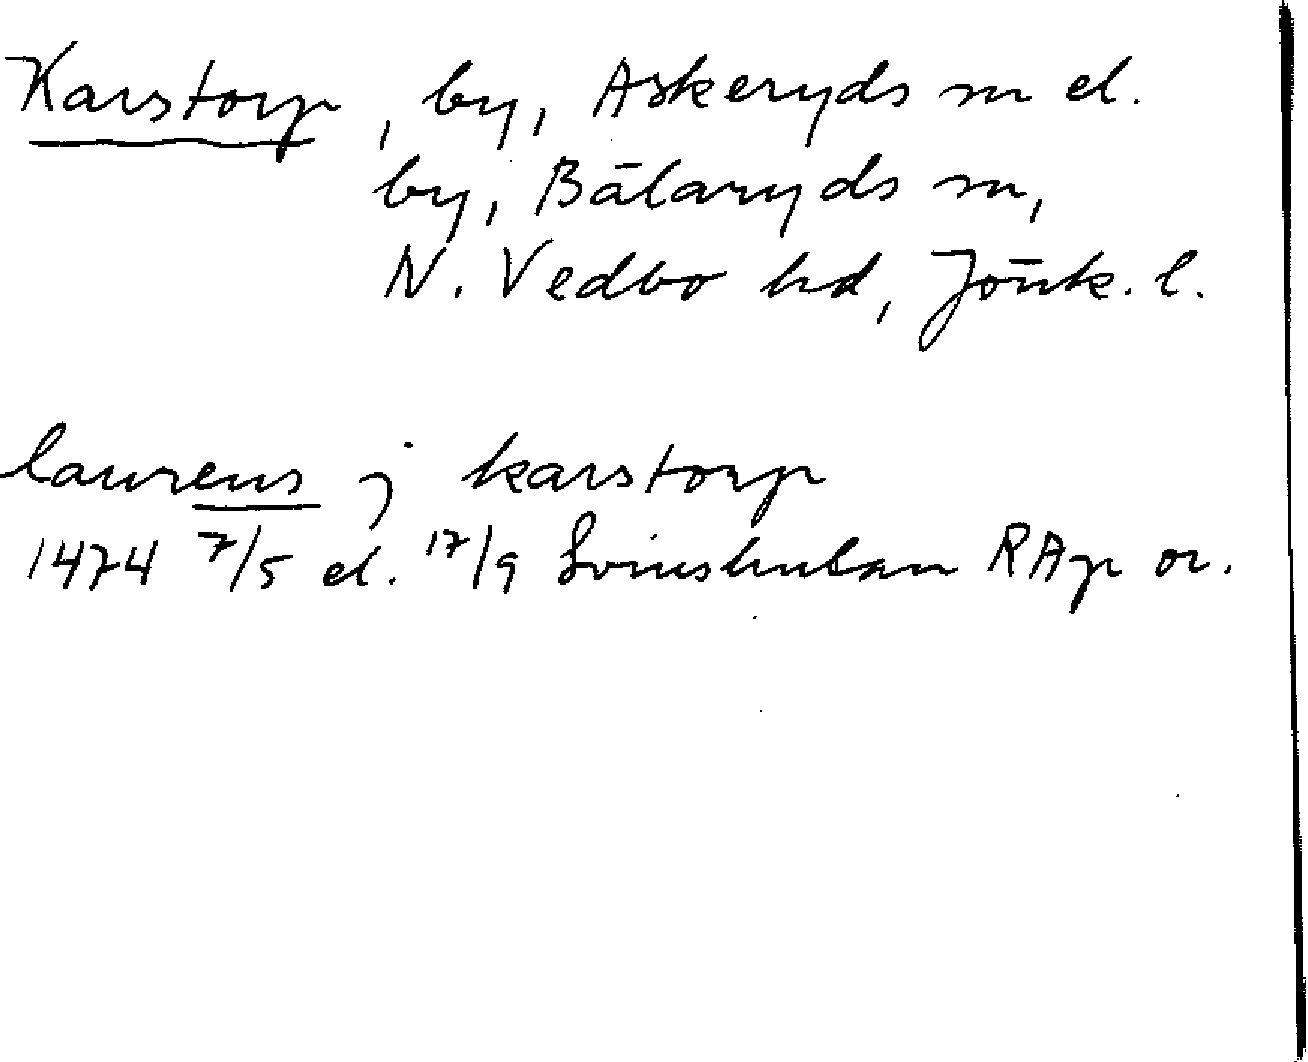 Karstorp, by, Askeryds sn el.
by, Bälaryds sn,
N. Vedbo hd, Jönk. l.
laurens j karstorp
1474 7/5 el. 17/9 Svinshuluan RAp or.